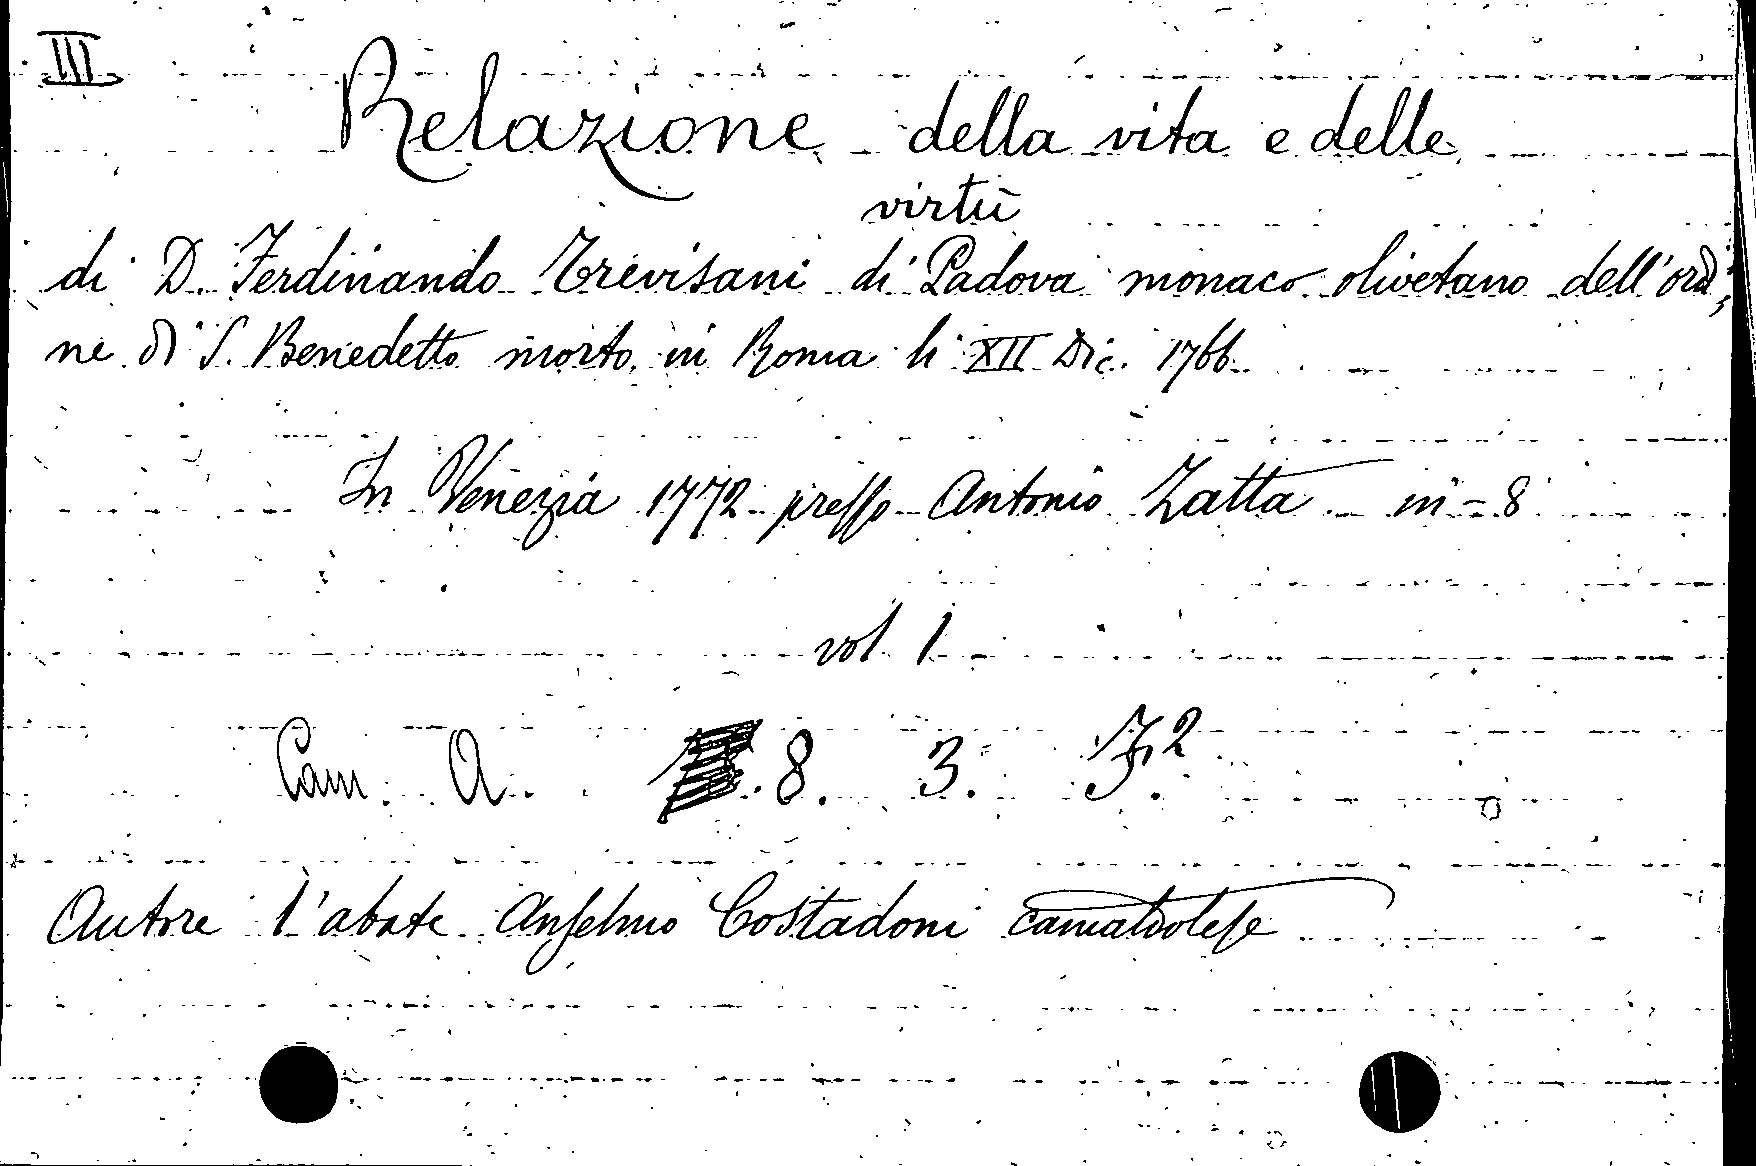 III
Relazione della vita e delle
virtù
di D. Ferdinando Trevisani di Padova monaco olivetano dell'ordi,
ne di S. Benedetto morto in Roma li XII Dic. 1766
In Venezia 1772 presso Antonio Zatta in-8
vol 1
Cam. A. 8. 3.
Autore l'abate Anselmo Costadoni camaldolese